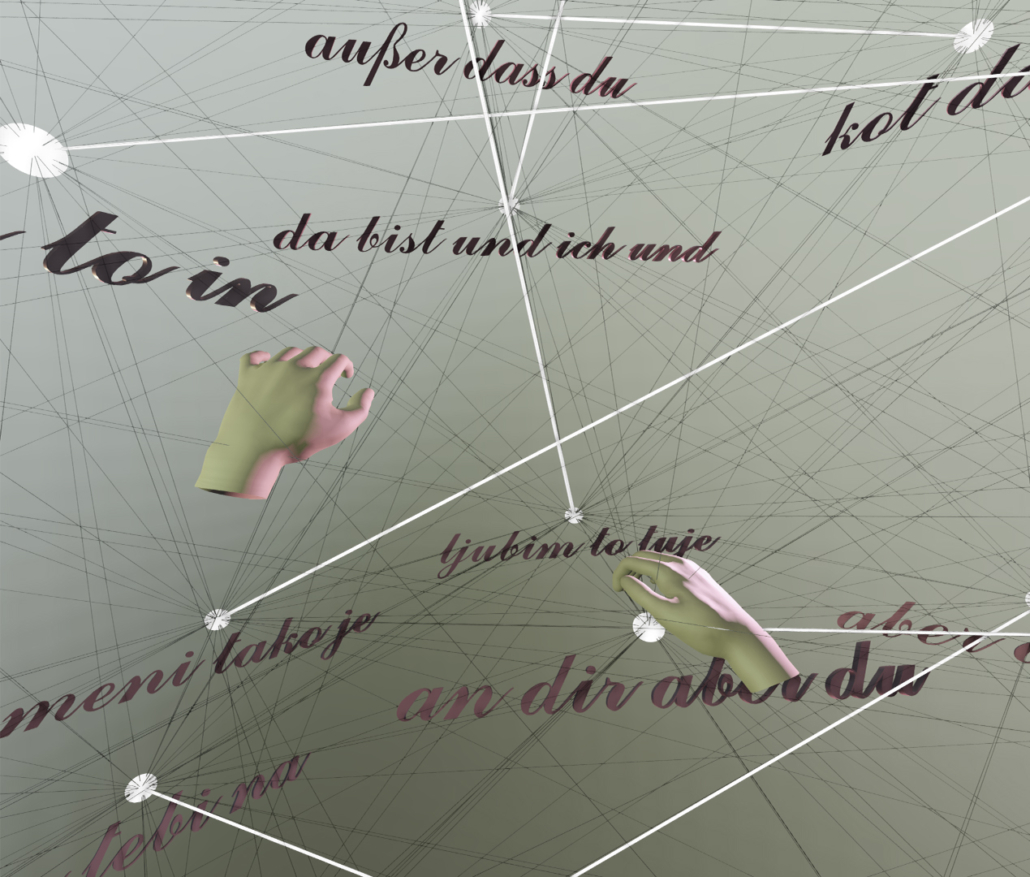 außer dass du
kot da
da bist und ich und
to in
ljubim to tuje
aber
meni tako je
an dir aber du
tebi na